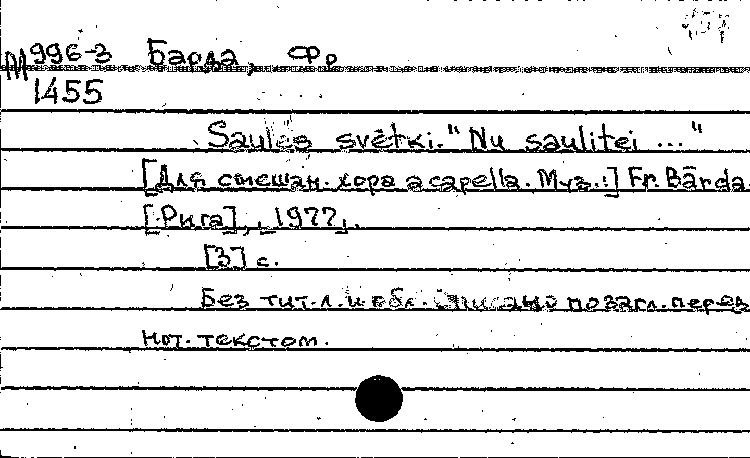 М 996-3 Барда, Фр.
1455
Saules svētki. "Nu saulitei ..."
[Для смешан. хора a capella. Муз.:] Fr. Bārda.
[Рига], [1977].
[3] с.
Без тит. л. и обл. Описано по загл. перед
нот. текстом.